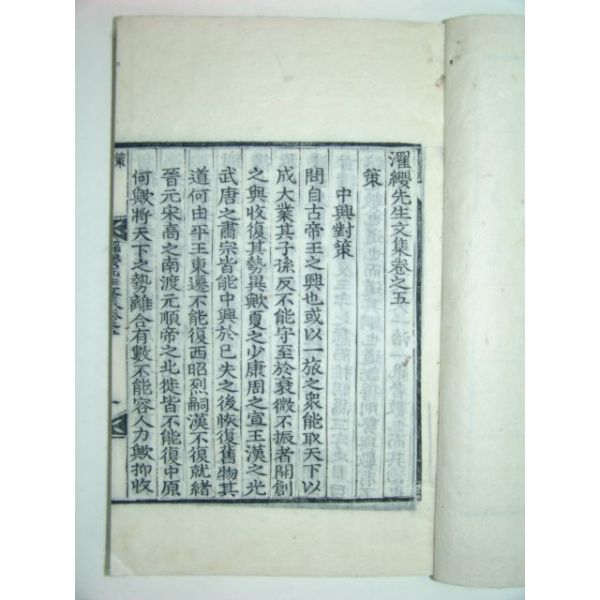 濯纓先生文集卷之五
策
中興對策
問自古帝王之興也或以一旅之衆能取天下以
成大業其子孫反不能守至於衰微不振者開創
之與收復其勢異歟夏之少康周之宣王漢之光
武唐之肅宗皆能中興於已失之後恢復舊物其
道何由平王東遷不能復西昭烈嗣漢不復就緖
晉元宋高之南渡元順帝之北徙皆不能復中原
何歟將天下之勢離合有數不能容人力歟抑收
策